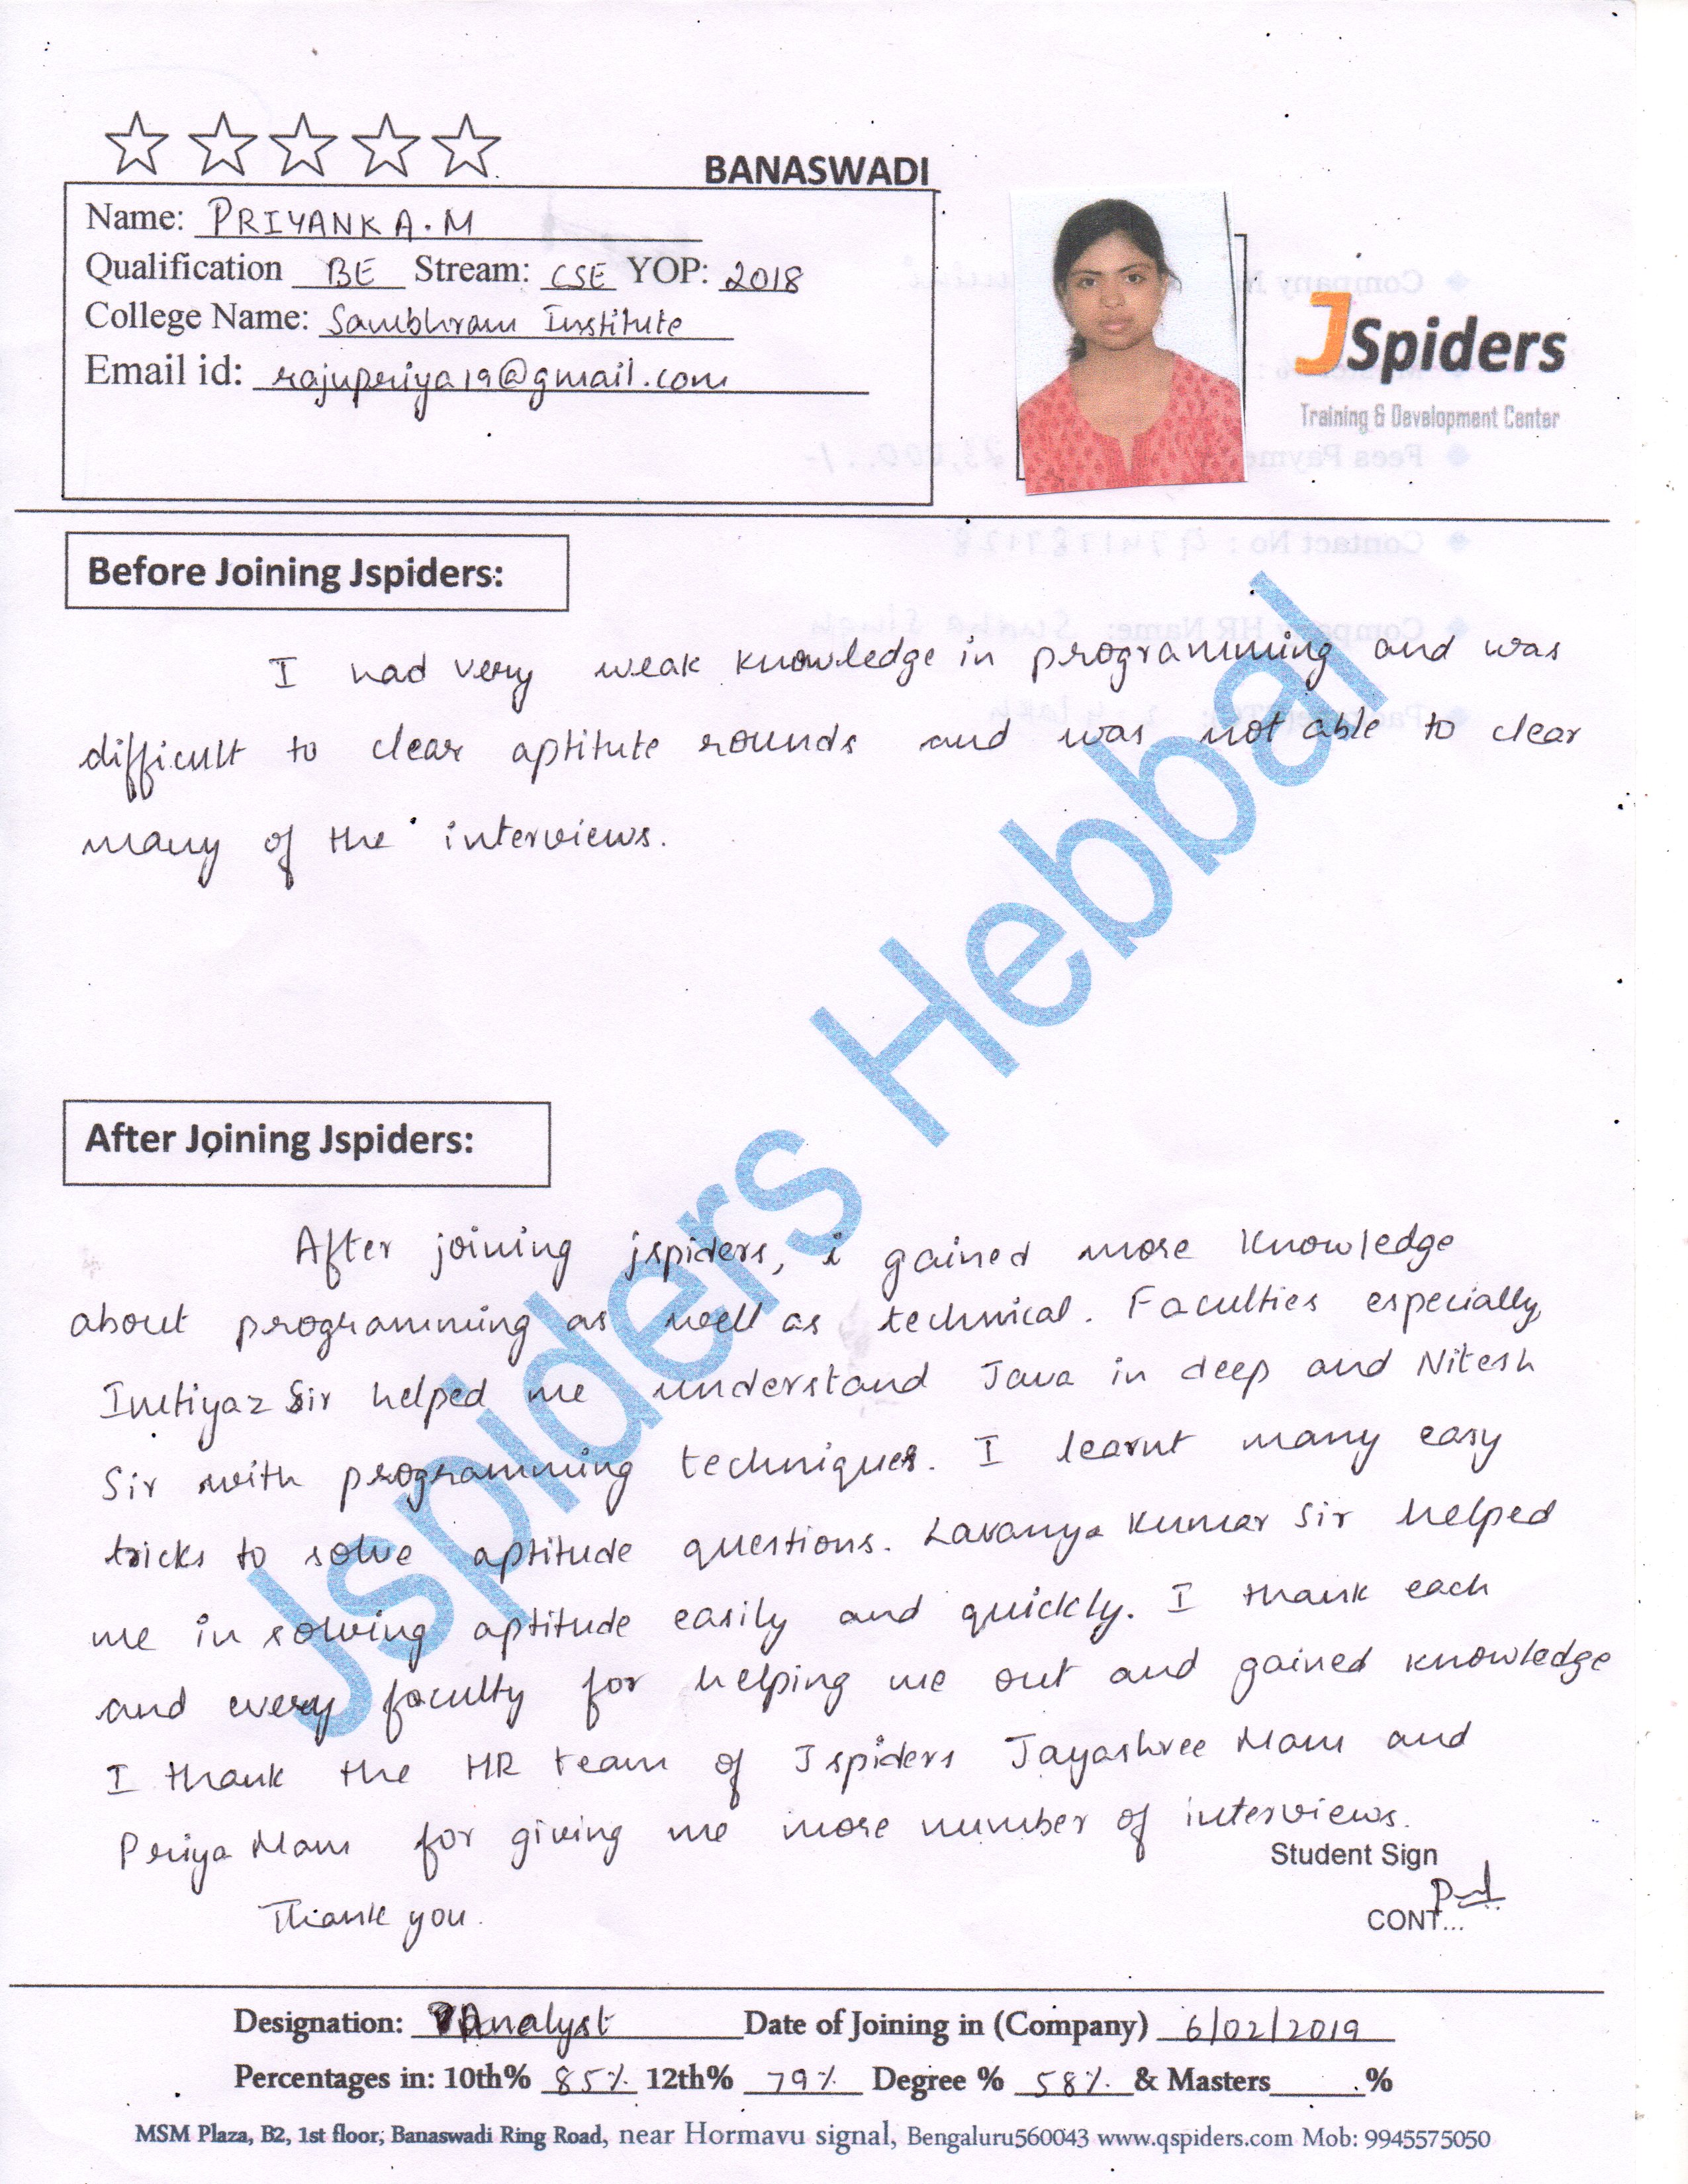 BANASWADI
Name: PRIYANKA.M
Qualification BE Stream: CSE YOP: 2018
College Name: Sambhram Institute
Email id: rajupriya19@gmail.com
JSpiders
Training & Development Center
Before Joining Jspiders:
I had very weak knowledge in programming and was
difficult to clear aptitute rounds and was not able to clear
many of the interviews.
After Joining Jspiders:
After joining jspiders, i gained more knowledge
about programming as well as technical. Faculties especially,
Imtiyaz Sir helped me understand Java in deep and Nitesh
Sir with programming techniques. I learnt many easy
tricks to solve aptitude questions. Lavanya Kumar Sir helped
me in solving aptitude easily and quickly. I thank each
and every faculty for helping me out and gained knowledge
I thank the HR team of Jspiders Jayashree Mam and
Priya Mam for giving me more number of interviews.
Thank you.
Student Sign
CONT...
Jspiders Hebbal
Designation: Analyst Date of Joining in (Company) 6/02/2019
Percentages in: 10th% 85% 12th% 79% Degree % 58% & Masters______.%
MSM Plaza, B2, 1st floor, Banaswadi Ring Road, near Hormavu signal, Bengaluru560043 www.qspiders.com Mob: 9945575050